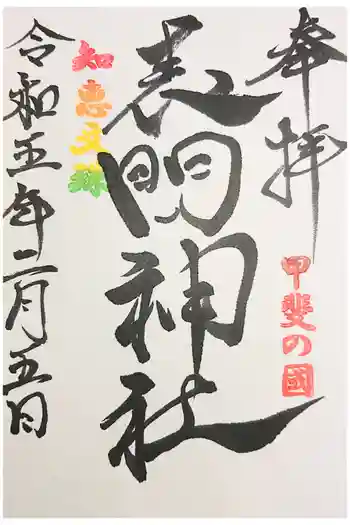 奉拝
甲斐の國
表門神社
知恵文殊
令和五年二月五日